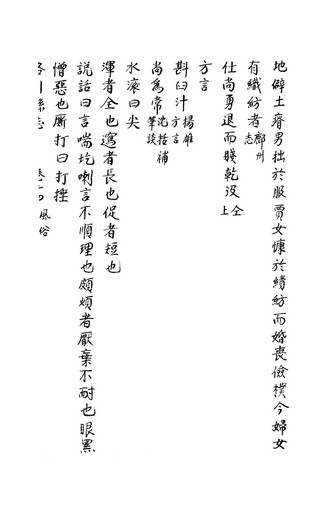 地僻土瘠男拙於服賈女慵於績紡而婚喪儉樸今婦女
有織紡者鄜州志
仕尚勇退而賤乾沒仝上
方言
斟曰汁揚雄方言
尚為常沈括補筆談
水滚曰尖
渾者全也寫者長也促者短也
説話曰言喘圪喇言不順理也頗煩者厭棄不耐也眼黑
憎惡也厮打曰打捶
洛川縣志 風俗